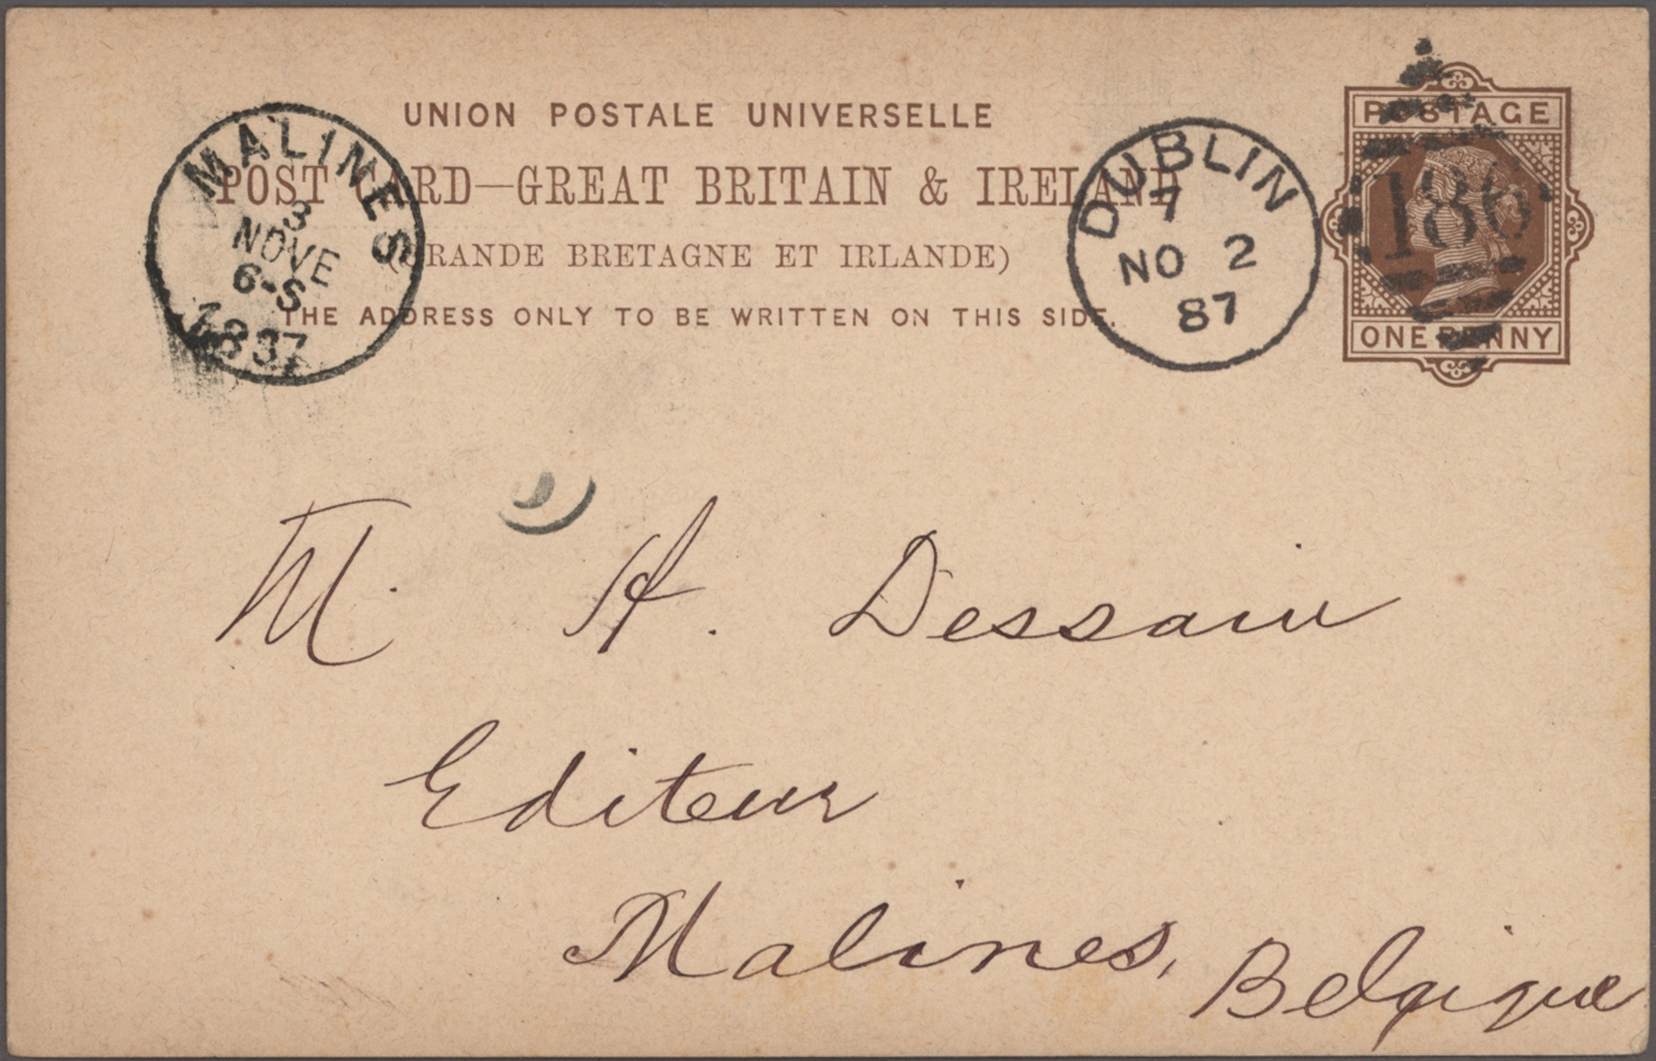 UNION POSTALE UNIVERSELLE
POST CARD—GREAT BRITAIN & IRELAND
(GRANDE BRETAGNE ET IRLANDE)
THE ADDRESS ONLY TO BE WRITTEN ON THIS SIDE.
MALINES
3
NOVE
6-S
1887
DUBLIN
7
NO 2
87
POSTAGE
186
ONE PENNY
M. H. Dessain
Editeur
Malines, Belgique